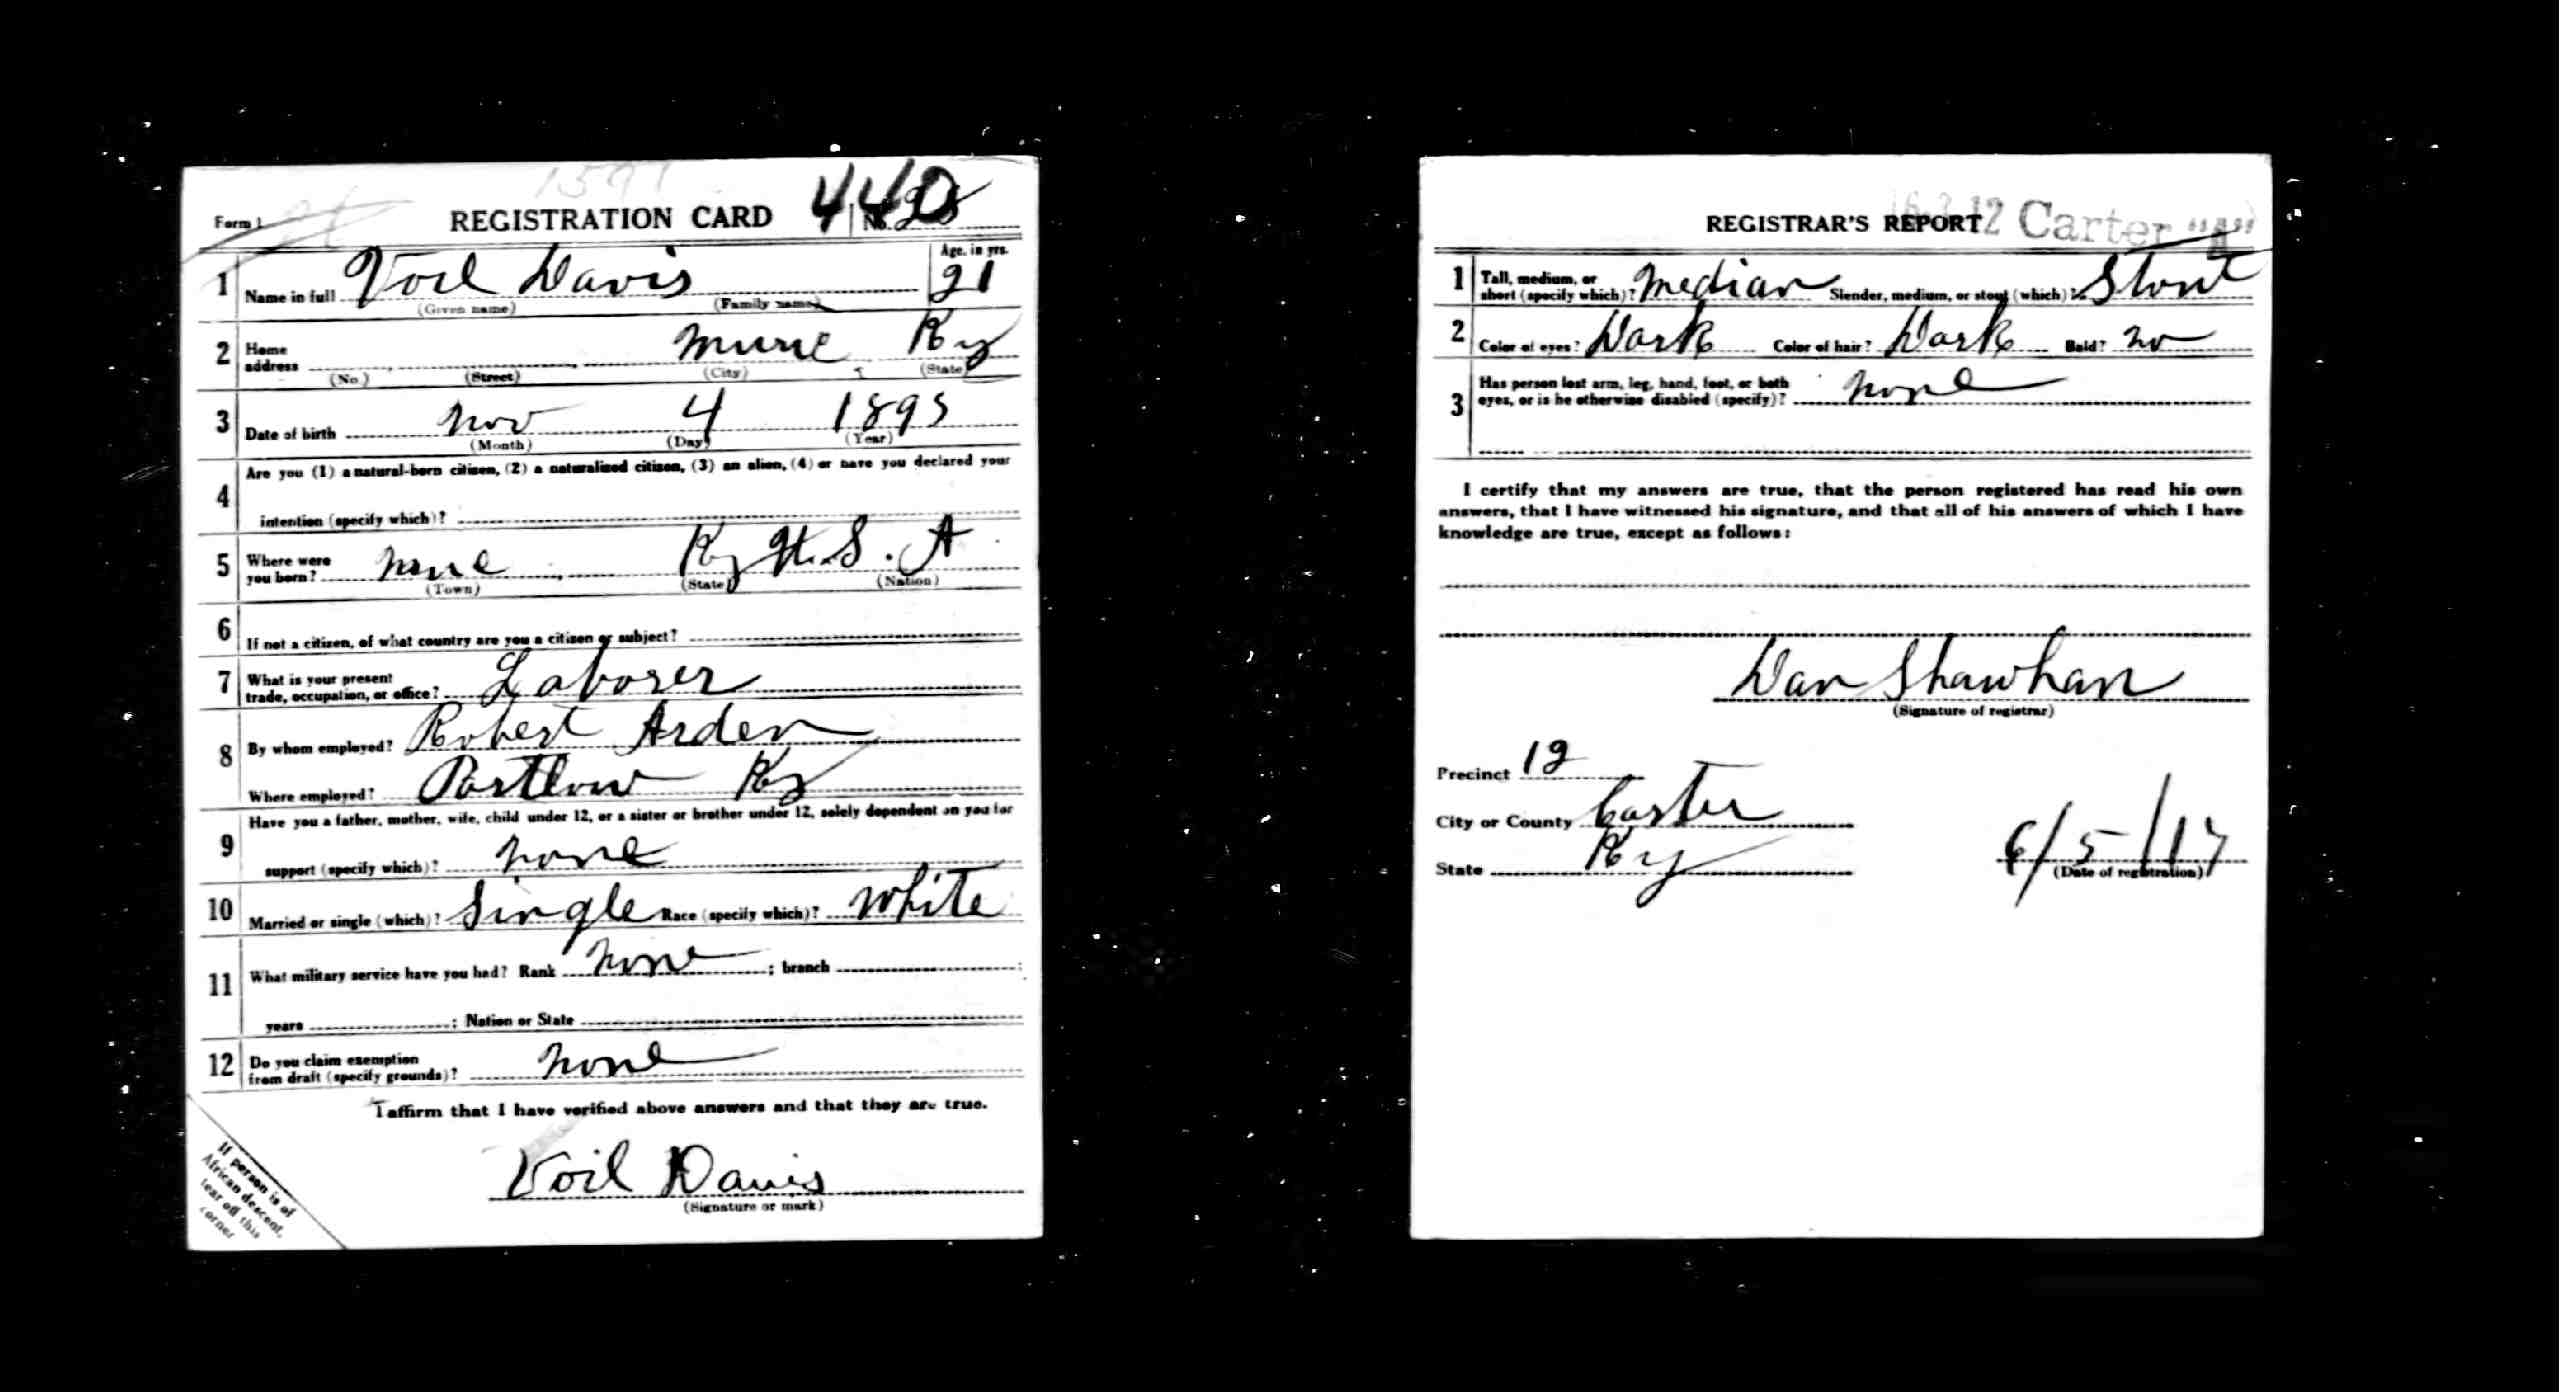 Form 1 REGISTRATION CARD 440 No. 28
1 Name in full Voil Davis Age, in yrs. 21
(Given name) (Family name)
2 Home address Ky
(No.) (Street) (City) (State)
3 Date of birth Nov 4 1895
(Month) (Day) (Year)
4 Are you (1) a natural-born citizen, (2) a naturalized citizen, (3) an alien, (4) or have you declared your
intention (specify which)?
5 Where were you born? Ky U.S.A
(Town) (State) (Nation)
6 If not a citizen, of what country are you a citizen or subject?
7 What is your present trade, occupation, or office? Laborer
8 By whom employed? Robert Arden
Where employed? Partlow Ky
9 Have you a father, mother, wife, child under 12, or a sister or brother under 12, solely dependent on you for
support (specify which)? none
10 Married or single (which)? Single Race (specify which)? White
11 What military service have you had? Rank none ; branch ;
years ; Nation or State
12 Do you claim exemption from draft (specify grounds)? none
I affirm that I have verified above answers and that they are true.
Voil Davis
(Signature or mark)
If person is of
African descent,
tear off this
corner
REGISTRAR'S REPORT Carter "A"
1 Tall, medium, or short (specify which)? Median Slender, medium, or stout (which)? Stout
2 Color of eyes? Dark Color of hair? Dark Bald? no
3 Has person lost arm, leg, hand, foot, or both eyes, or is he otherwise disabled (specify)? none
I certify that my answers are true, that the person registered has read his own
answers, that I have witnessed his signature, and that all of his answers of which I have
knowledge are true, except as follows:
Dan Shawhan
(Signature of registrar)
Precinct 12
City or County Carter
State Ky
6/5/17
(Date of registration)